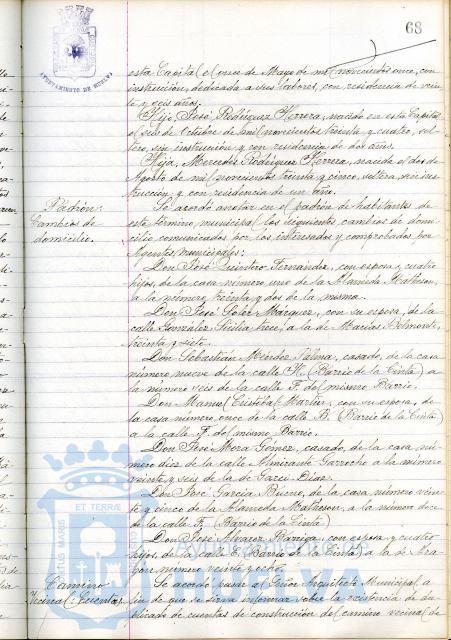 68
AYUNTAMIENTO DE HUELVA
esta Capital el once de Mayo de mil novecientos once, con
instrucción, dedicada a sus labores, con residencia de vein
te y seis años.
Hijo, José Rodríguez Herrera, nacido en esta Capital
el seis de Octubre de mil novecientos treinta y cuatro, sol-
tero, sin instrucción y con residencia de dos años.
Hija, Mercedes Rodríguez Herrera, nacida el dos de
Agosto de mil novecientos treinta y cinco, soltera, sin ins-
trucción, y con residencia de un año.
Padrón:
Cambios de
domicilio.
Se acordó anotar en el padrón de habitantes de
este término municipal los siguientes cambios de domi-
cilio comunicados por los interesados y comprobados por
Agentes municipales:
Don José Quintero Fernández, con esposa y cuatro
hijos, de la casa número uno de la Alameda Matheson,
a la número treinta y dos de la misma.
Don José Soler Márquez, con su esposa, de la
calle González Sicilia trece, a la de Macías Belmonte,
treinta y siete.
Don Sebastián Méndez Palma, casado, de la casa
número nueve de la calle H. (Barrio de la Cinta) a
la número seis de la calle F. del mismo Barrio.
Don Manuel Cristóbal Martier, con su esposa, de
la casa número once de la calle B. (Barrio de la Cinta)
a la calle F. del mismo Barrio.
Don José Mora Gómez, casado, de la casa nú-
mero diez de la calle Almirante Garrocho a la número
veinte y seis de la de Garci Díaz.
Don José García Bueno, de la casa número vein-
te y cinco de la Alameda Matheson, a la número doce
de la calle F. (Barrio de la Cinta)
Don José Álvarez Barriga, con esposa y cuatro
hijos, de la calle E. Barrio de la Cinta, a la de
número veinte y ocho.
Camino
Vecinal: Cuentas
Se acordó pasar al Señor Arquitecto Municipal a
fin de que se sirva informar sobre la existencia de du-
plicado de cuentas de construcción del camino vecinal de
ET TERRÆ